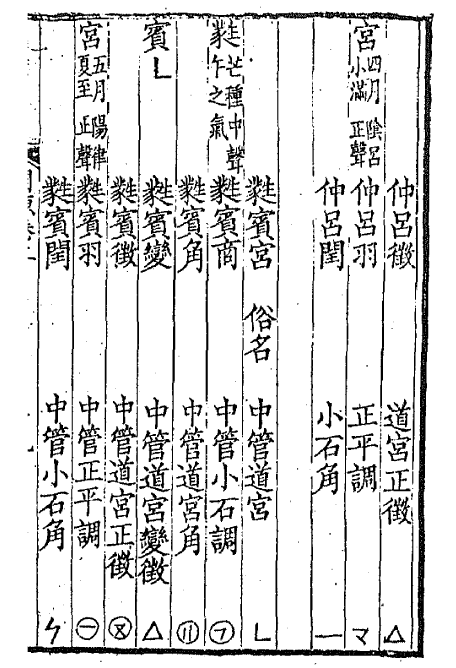 仲呂徵 道宮正徵 △
宮 四月 陰呂 小滿 正聲 仲呂羽 正平調 マ
仲呂閏 小石角 一
蕤賓宮 俗名 中管道宮 ㄴ
蕤 芒種中聲 午之氣 蕤賓商 中管小石調 ㋛
蕤賓角 中管道宮角
賓 ㄴ 蕤賓變 中管道宮變徵 △
蕤賓徵 中管道宮正徵
宮 五月 陽律 夏至 正聲 蕤賓羽 中管正平調 ㊀
蕤賓閏 中管小石角 ㄣ